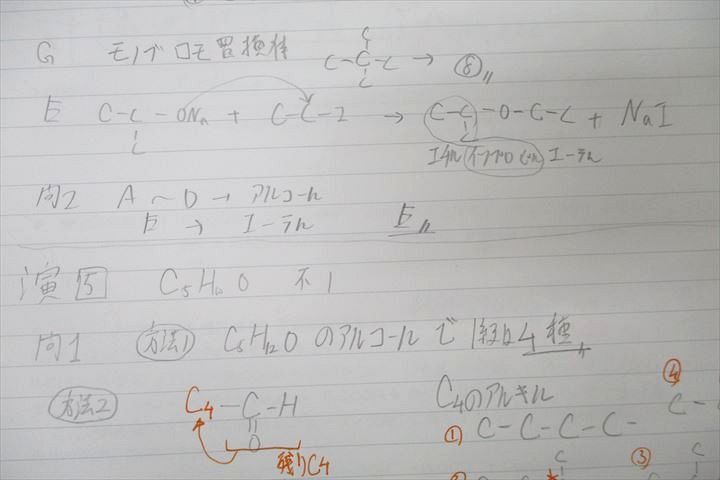 G モノブロモ置換体 C-C-C-C → ⑧〃
C
C
E C-C-ONa + C-C-I → C-C-O-C-C + NaI
C
C
エチルイソプロピルエーテル
問2 A~D → アルコール
E → エーテル E〃
演 15 C5H10O 不1
問1 方法1 C5H12Oのアルコールで1級は4種〃
方法2 C4-C-H
O
残りC4
C4のアルキル ④
C-
① C-C-C-C-
C
③ C